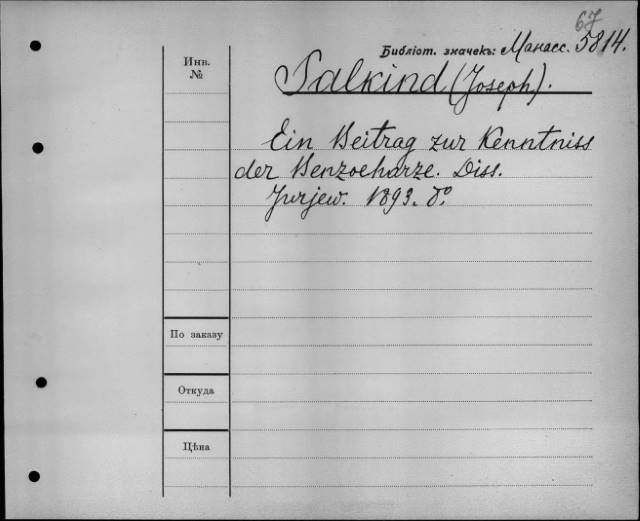 67
Библіот. значекъ: Манасс. 5814.
Инв.
№
Salkind (Joseph).
Ein Beitrag zur Kenntniss
der Benzoeharze. Diss.
Jurjew. 1893. 8°
По заказу
Откуда
Цѣна